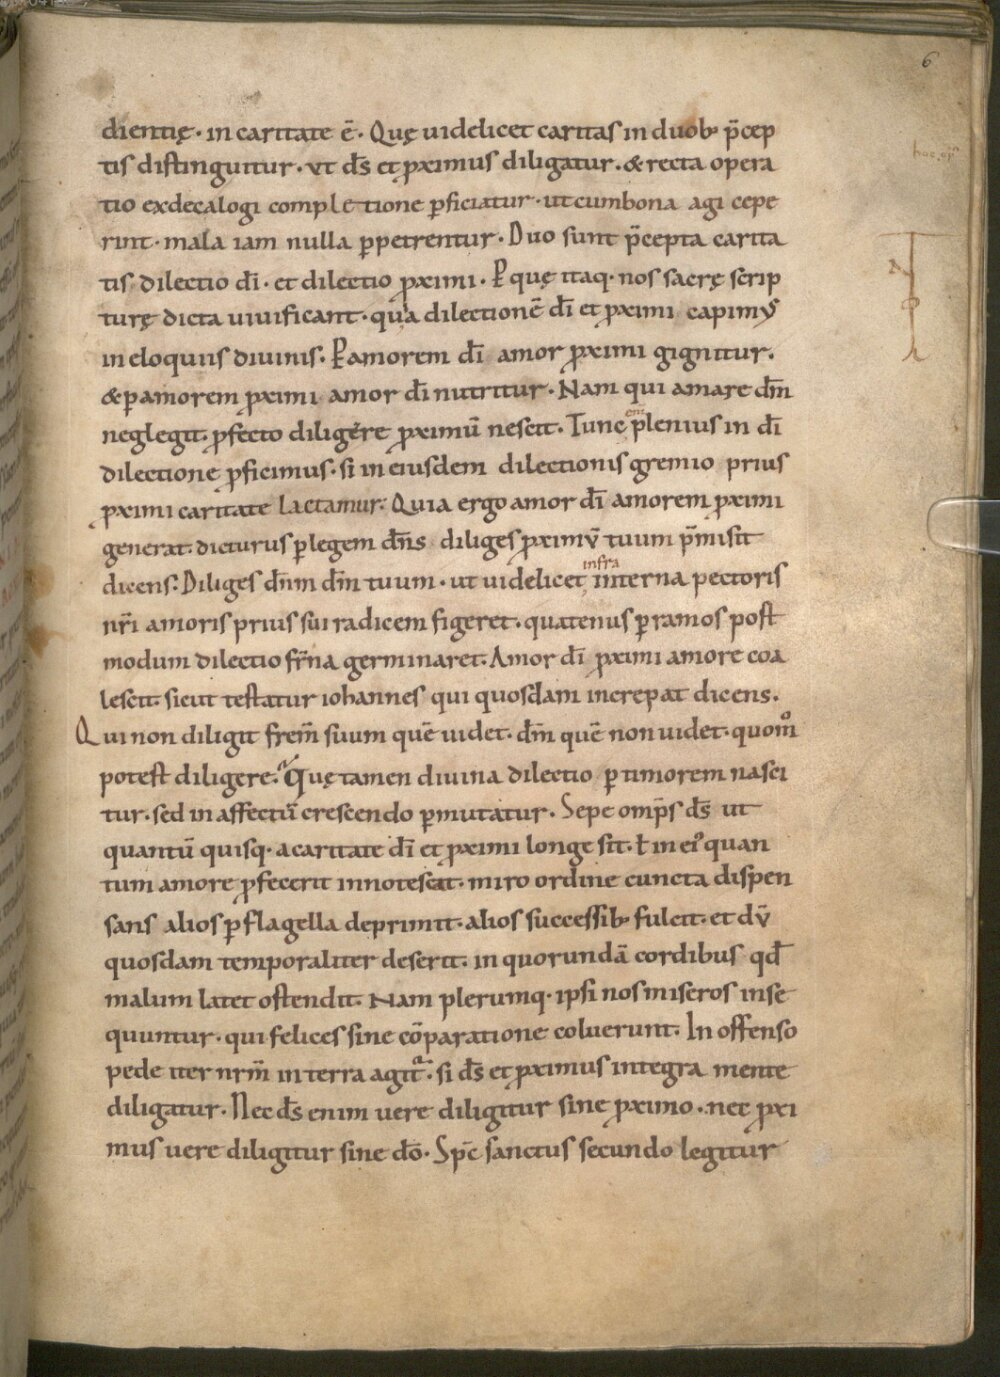 6
dientię · in caritate ē · Quę uidelicet caritas in duob; p̄cep
tis distinguitur · vt d̄s et ꝓximus diligatur · & recta opera
tio exdecalogi completione ꝑficiatur · ut cumbona agi cepe
rint · mala iam nulla ꝑpetrentur · Duo sunt p̄cepta carita
tis dilectio dī · et dilectio ꝓximi · Ꝑ quę itaq· nos sacrę scrip
turę dicta uiuificant · quia dilectionē dī et ꝓximi capimꝰ
in eloquiis diuinis · Ꝑ amorem dī amor ꝓximi gignitur ·
& ꝑ amorem ꝓximi amor dī nutritur · Nam qui amare dm̄
neglegit · ꝓfecto diligere ꝓximū nescit · Tunc em̄ plenius in dī
dilectione ꝓficimus · si in eiusdem dilectionis gremio prius
ꝓximi caritate lactamur · Quia ergo amor dī amorem ꝓximi
generat · dicturus ꝑ legem dn̄s diliges ꝓximū tuum p̄misit
dicens · Diliges dn̄m dm̄ tuum · ut uidelicet infra interna pectoris
nr̄i amoris prius sui radicem figeret · quatenus ꝑ ramos post
modum dilectio fr̄na germinaret · Amor dī ꝓximi amore coa
lescit · sicut testatur iohannes qui quosdam increpat dicens ·
Qui non diligit frem̄ suum quē uidet · dm̄ quē non uidet · quom̊
potest diligere · Quę tamen diuina dilectio ꝑ timorem nasci
tur · sed in affectū crescendo ꝑmutatur · Sepe omp̄s d̄s ut
quantū quisq· a caritate dī et ꝓximi longe sit · ł in eiꝰ quan
tum amore ꝓfecerit innotescat · miro ordine cuncta dispen
sans alios ꝑ flagella deprimit · alios successib; fulcit · et dū
quosdam temporaliter deserit · in quorundā cordibus qd̄
malum latet ostendit · Nam plerumq· ipsi nos miseros inse
quuntur · qui felices sine cōparatione coluerunt · In offenso
pede iter nrm̄ in terra agit᷑ · si d̄s et ꝓximus integra mente
diligatur · Nec d̄s enim uere diligitur sine ꝓximo · nec ꝓxi
mus uere diligitur sine dō · Sp̄c sanctus secundo legitur